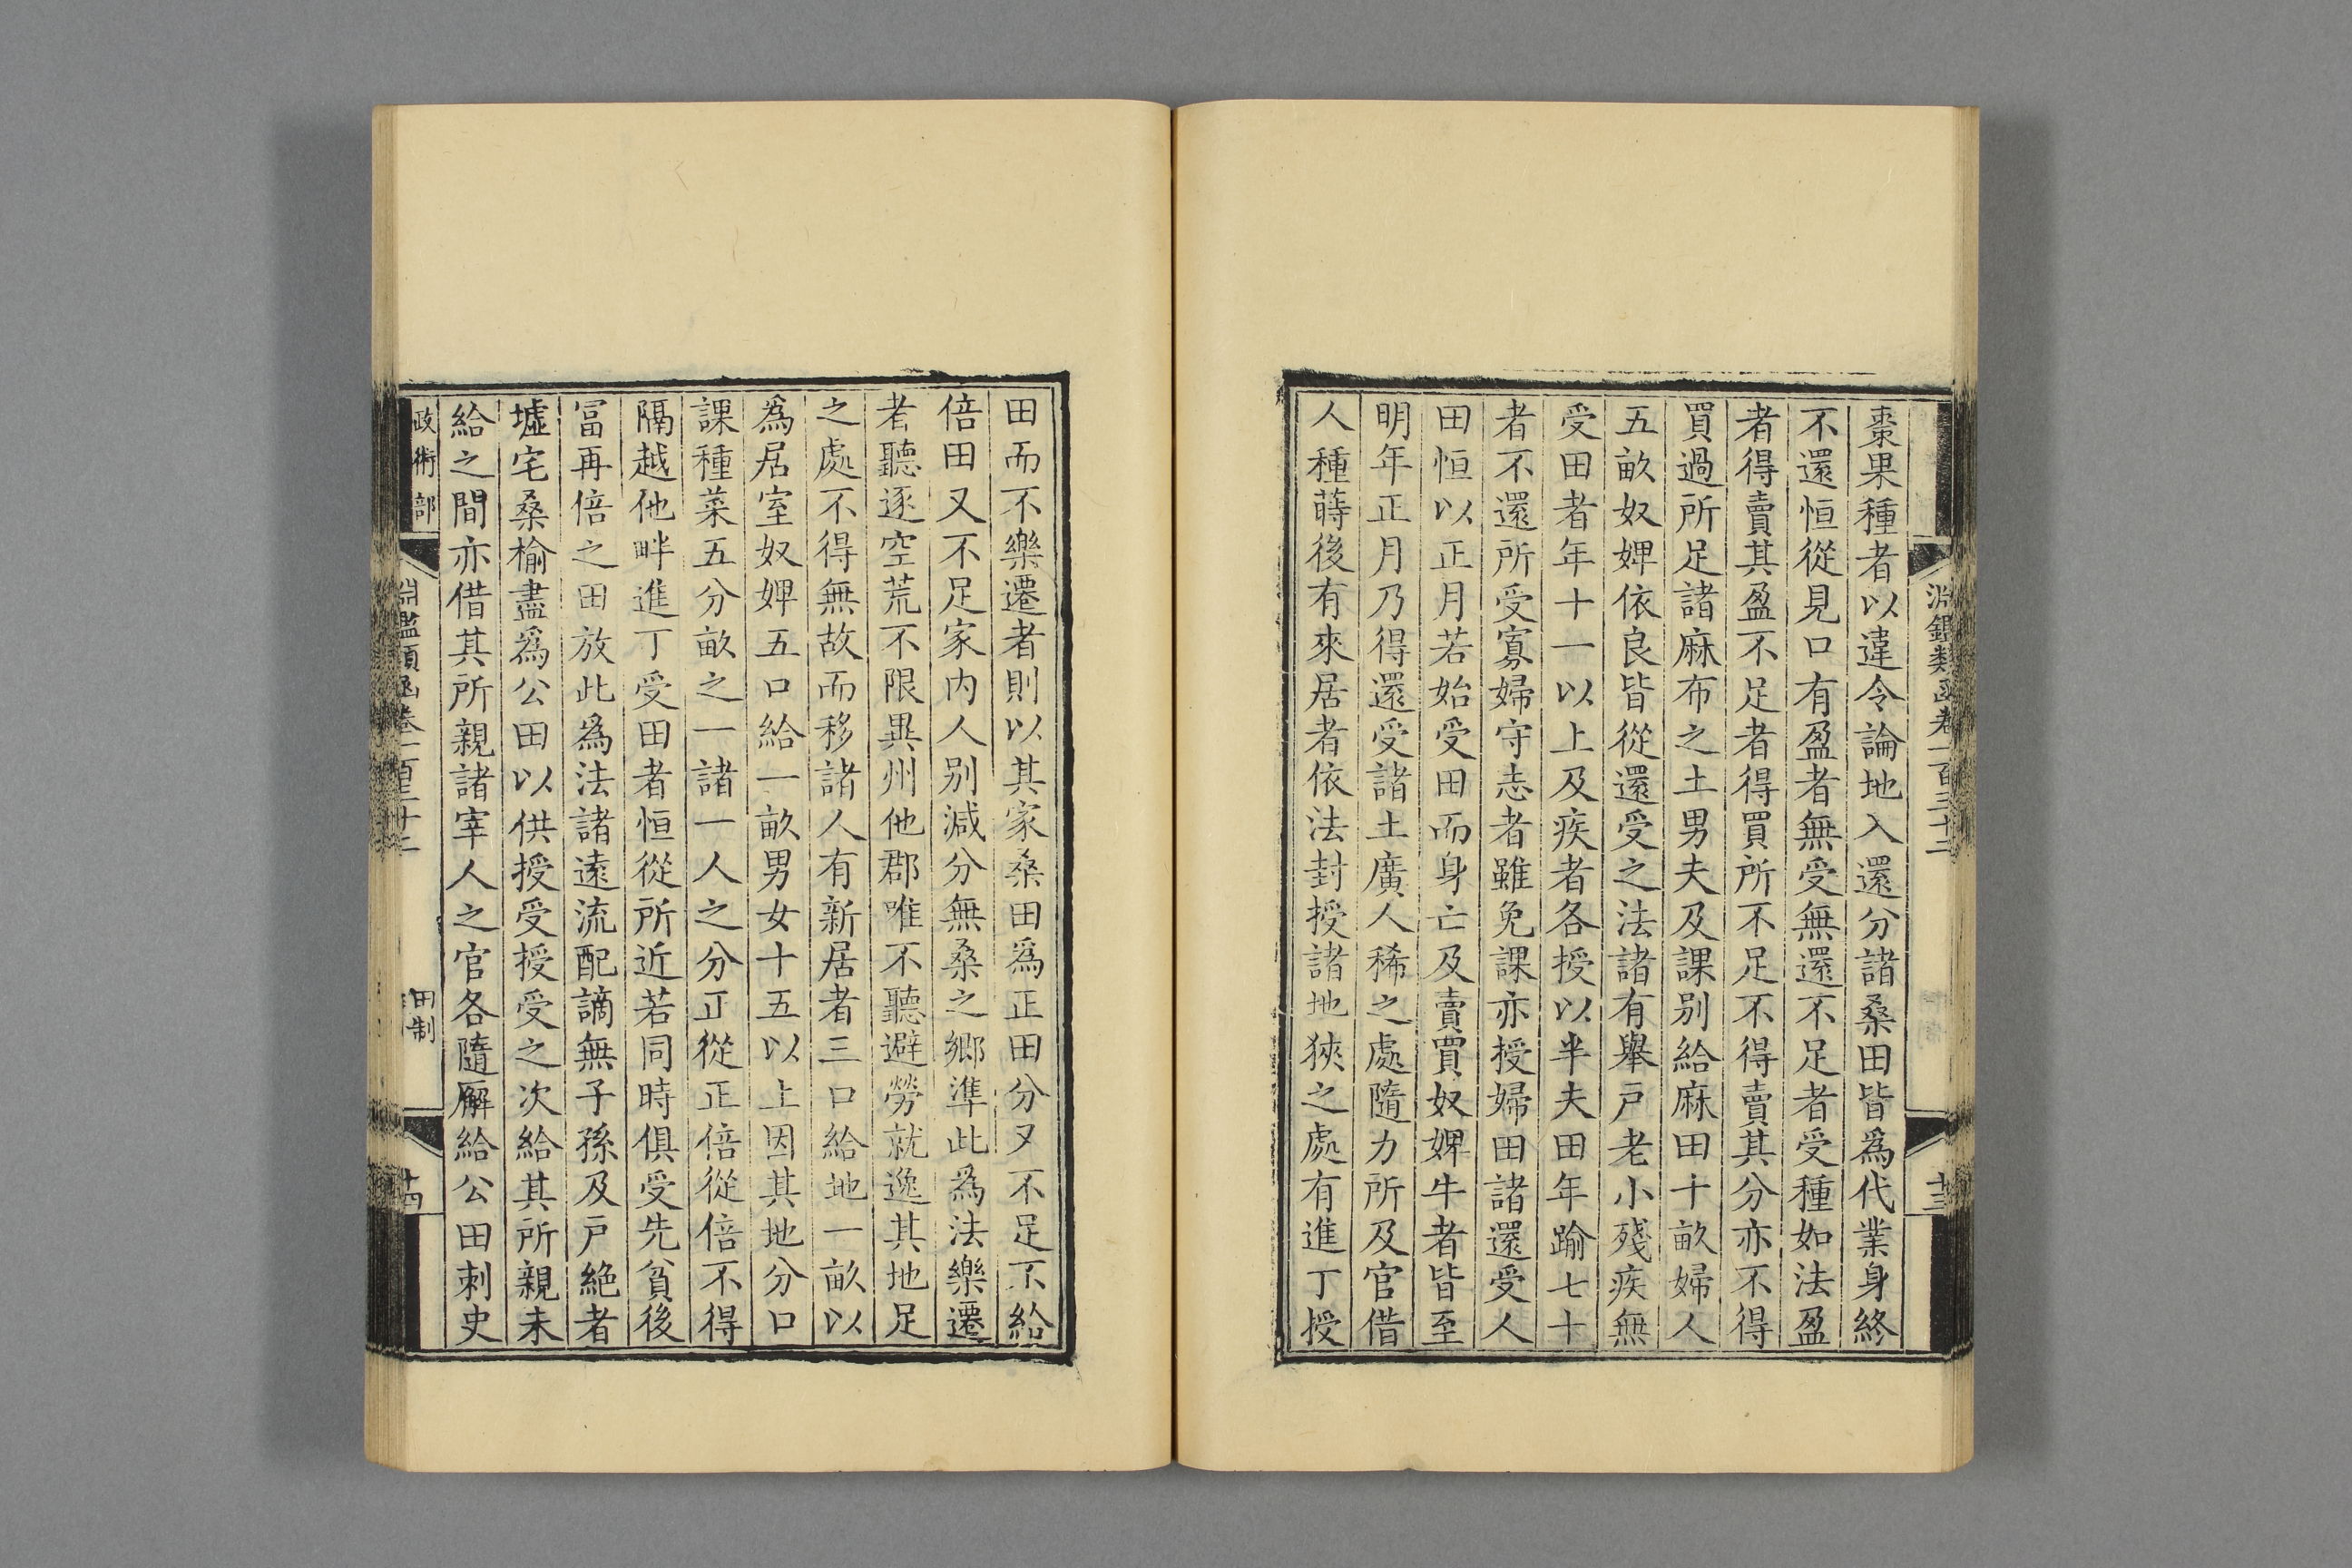 淵鑑類函卷一百三十二
十三
棗果種者以違令論地入還分諸桑田皆爲代業身終
不還恒從見口有盈者無受無還不足者受種如法盈
者得賣其盈不足者得買所不足不得賣其分亦不得
買過所足諸麻布之土男夫及課别給麻田十畝婦人
五畝奴婢依良皆從還受之法諸有舉戸老小殘疾無
受田者年十一以上及疾者各授以半夫田年踰七十
者不還所受寡婦守志者雖免課亦授婦田諸還受人
田恒以正月若始受田而身亡及賣買奴婢牛者皆至
明年正月乃得還受諸土廣人稀之處隨力所及官借
人種蒔後有來居者依法封授諸地狹之處有進丁授
田而不樂遷者則以其家桑田爲正田分又不足不給
倍田又不足家内人别減分無桑之鄉準此爲法樂遷
者聽逐空荒不限異州他郡唯不聽避勞就逸其地足
之處不得無故而移諸人有新居者三口給地一畝以
爲居室奴婢五口給一畝男女十五以上因其地分口
課種菜五分畝之一諸一人之分正從正倍從倍不得
隔越他畔進丁受田者恒從所近若同時俱受先貧後
冨再倍之田放此爲法諸遠流配謫無子孫及戸絶者
墟宅桑榆盡爲公田以供授受授受之次給其所親未
給之間亦借其所親諸宰人之官各隨廨給公田刺史
政術部
淵鑑類函卷一百三十二
田制
十四